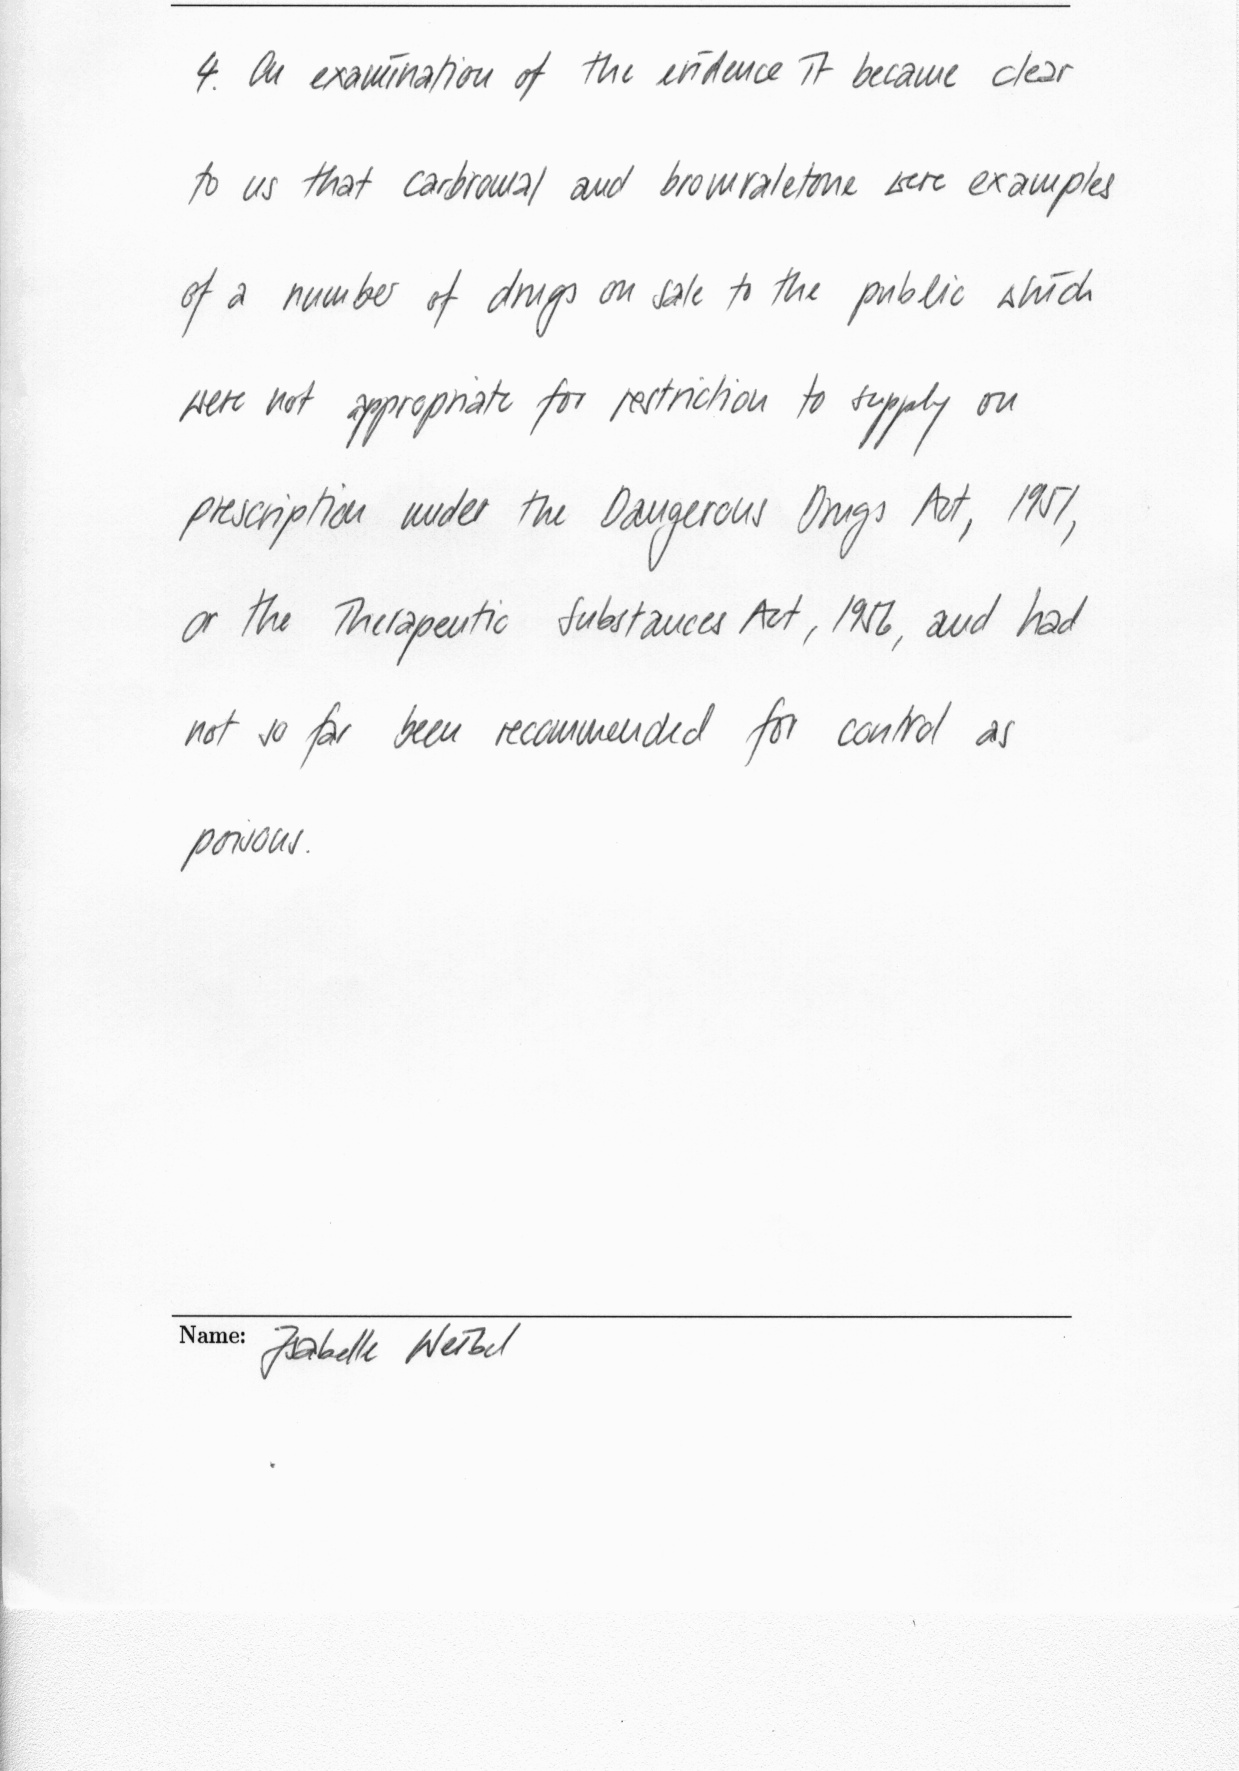 4. On examination of the evidence it became clear
to us that carbromal and bromvaletone were examples
of a number of drugs on sale to the public which
were not appropriate for restriction to supply on
prescription under the Dangerous Drugs Act, 1951,
or the Therapeutic Substances Act, 1956, and had
not so far been recommended for control as
poisons.
Name: Isabelle Weibel